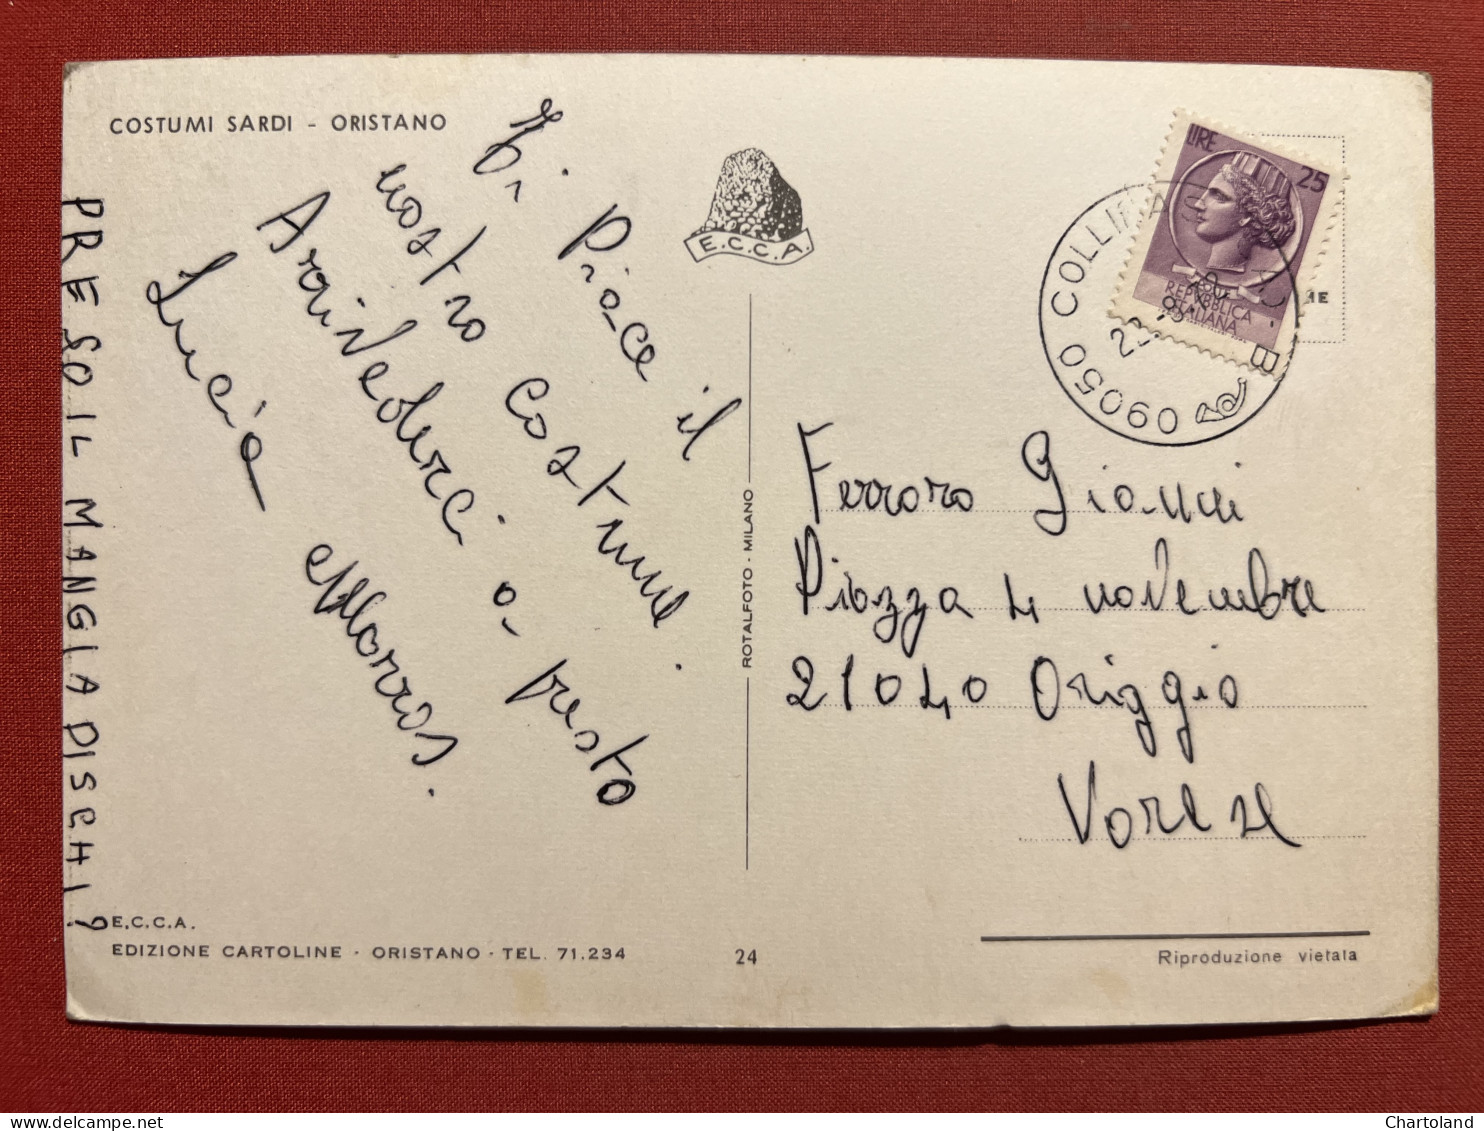 COSTUMI SARDI - ORISTANO
Ti piace il
nostro costume
Arrivederci a presto
Lucia Marras.
PRESO IL MANGIADISCHI?
E.C.C.A.
ROTALFOTO - MILANO
LIRE 25
REPUBBLICA
ITALIANA
09050 COLLINAS
Ferraro Gianni
Piazza 4 novembre
21040 Origgio
Varese
E.C.C.A.
EDIZIONE CARTOLINE - ORISTANO - TEL. 71.234
24
Riproduzione vietata
Chartoland